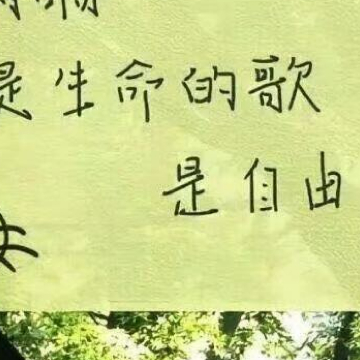 是生命的歌
是自由